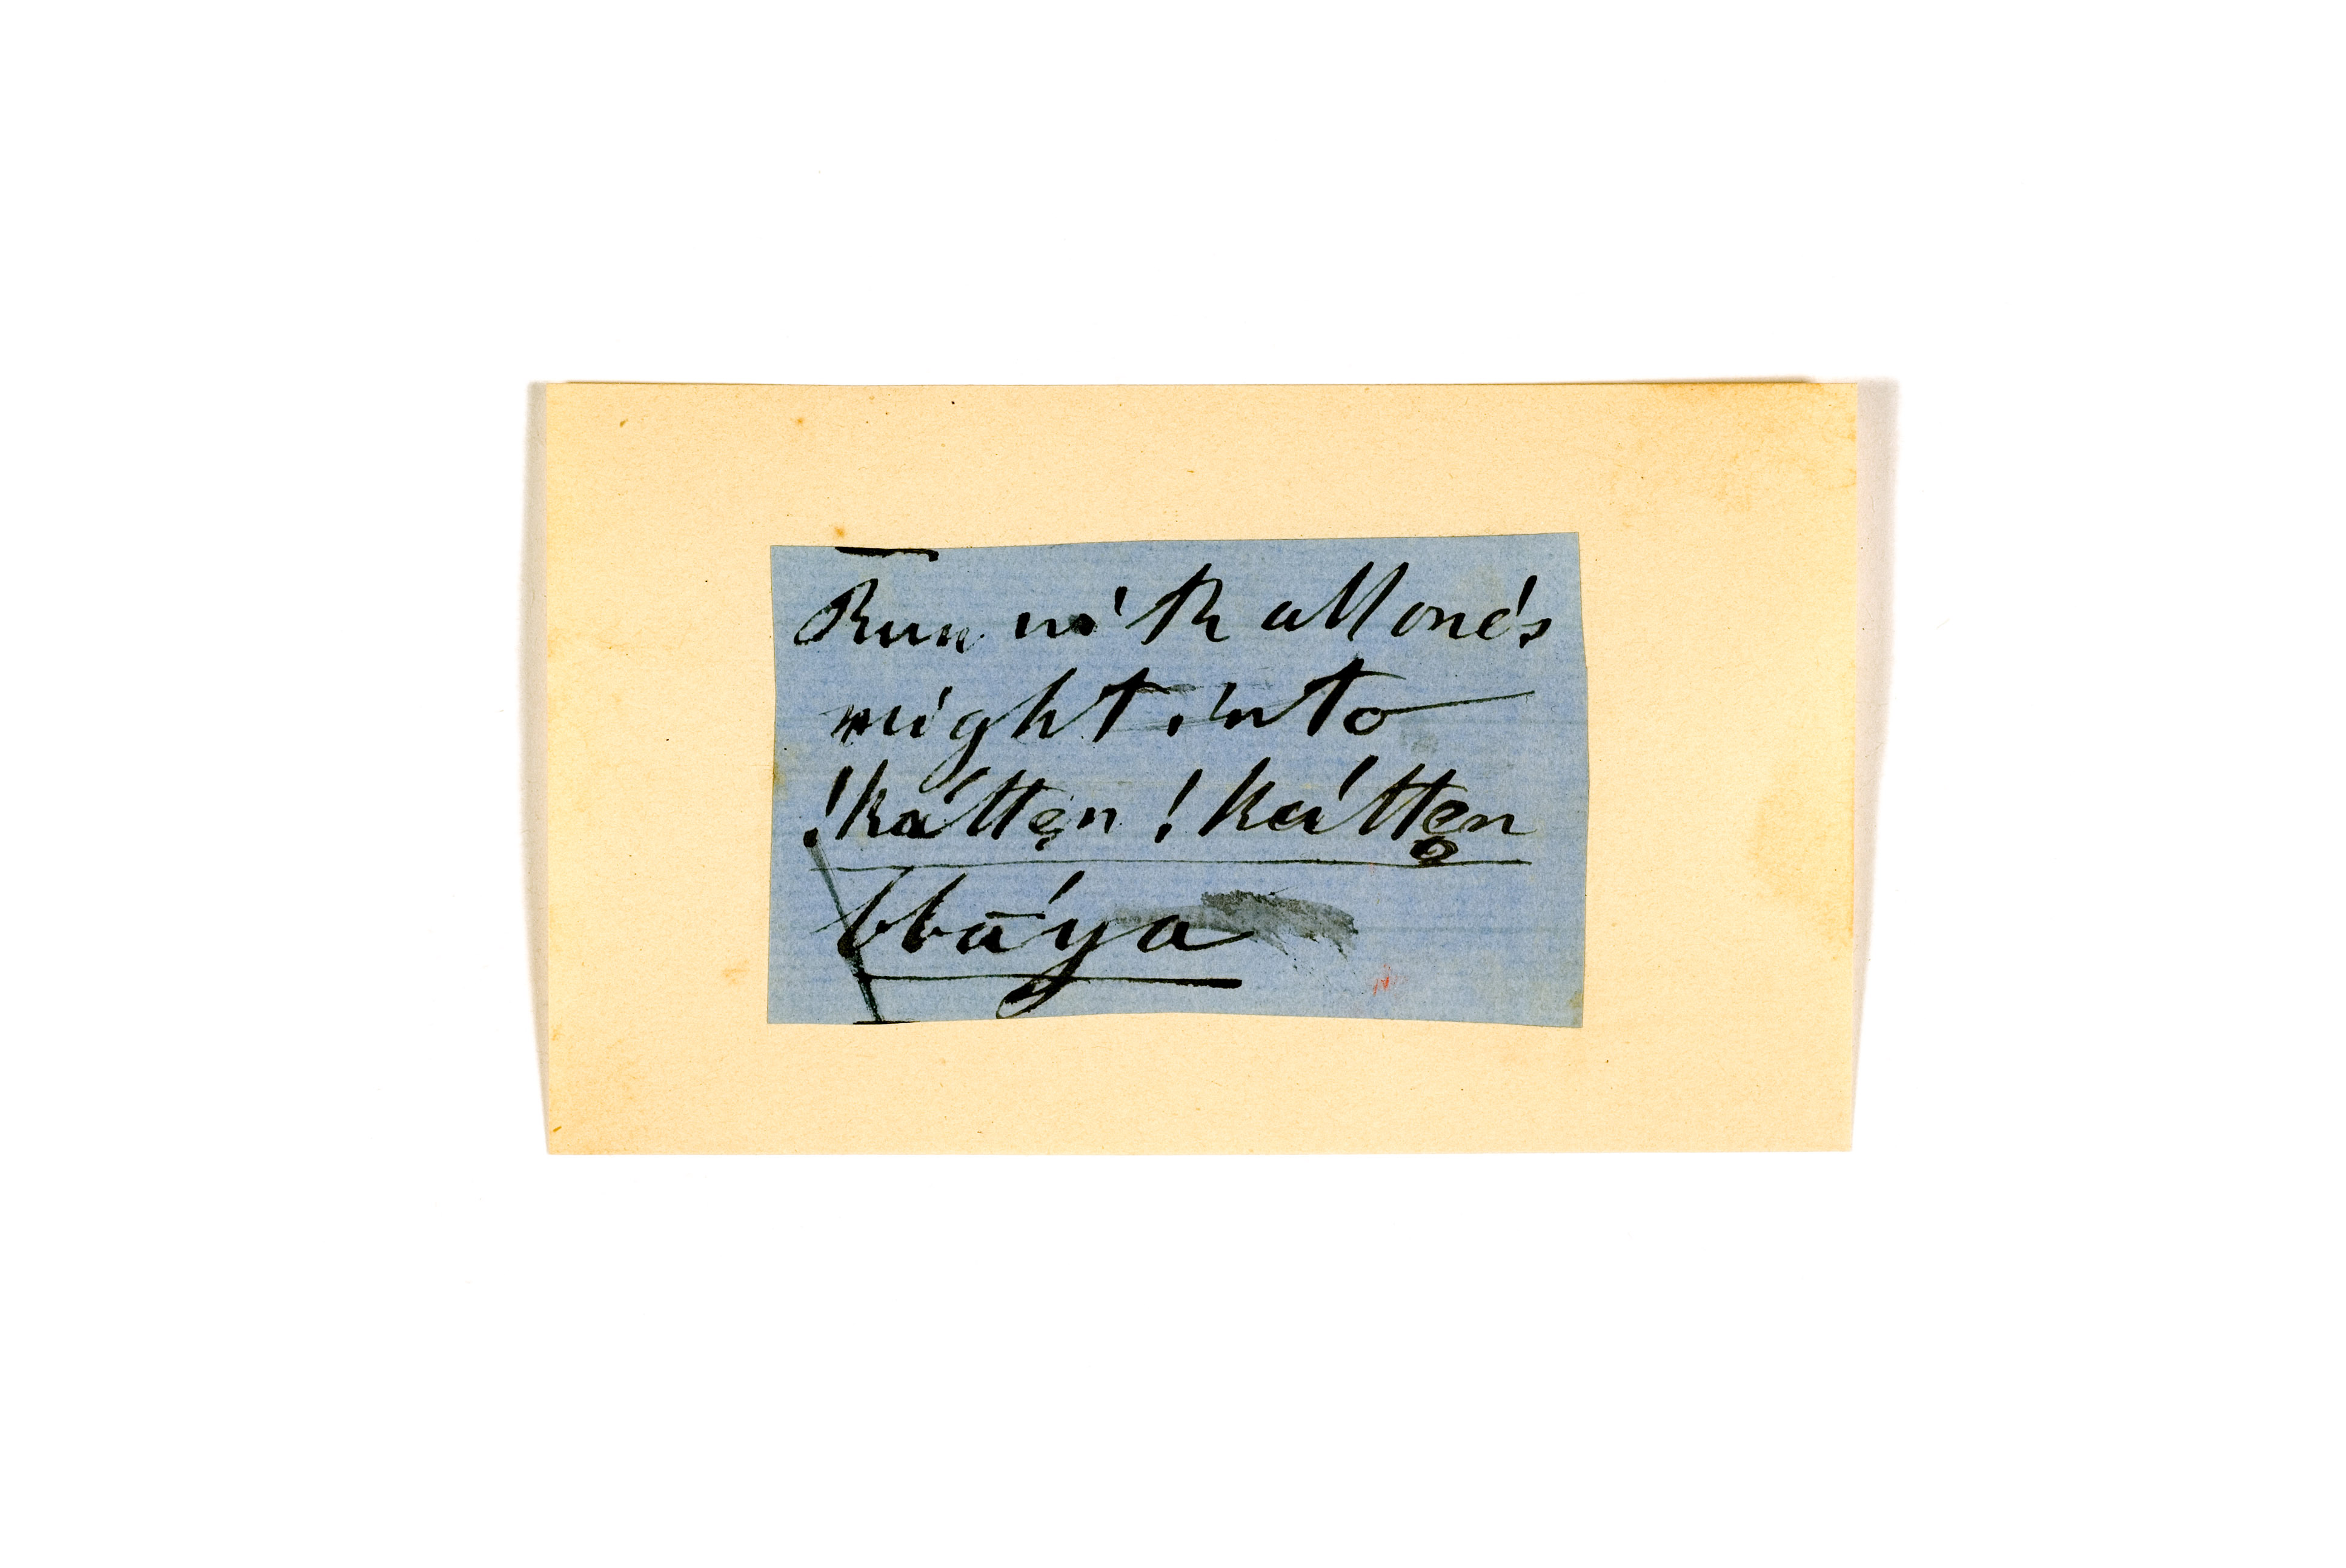 Run with all one's
might into
!kátten !kátten
tbā́ya